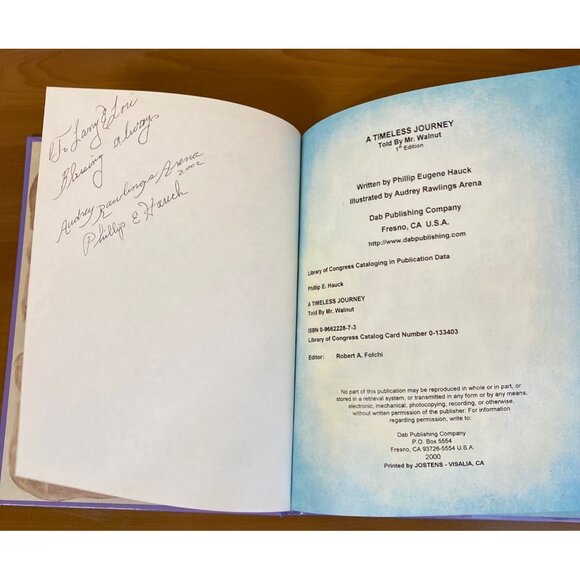 To Larry & Lori
Blessing always
Audrey Rawlings Arena
2002
Phillip E Hauck
A TIMELESS JOURNEY
Told By Mr. Walnut
1st Edition
Written by Phillip Eugene Hauck
Illustrated by Audrey Rawlings Arena
Dab Publishing Company
Fresno, CA U.S.A.
http://www.dabpublishing.com
Library of Congress Cataloging in Publication Data
Phillip E. Hauck
A TIMELESS JOURNEY
Told By Mr. Walnut
ISBN 0-9662228-7-3
Library of Congress Catalog Card Number 0-133403
Editor: Robert A. Folchi
No part of this publication may be reproduced in whole or in part, or
stored in a retrieval system, or transmitted in any form or by any means,
electronic, mechanical, photocopying, recording, or otherwise,
without written permission of the publisher. For information
regarding permission, write to:
Dab Publishing Company
P.O. Box 5554
Fresno, CA 93726-5554 U.S.A.
2000
Printed by JOSTENS - VISALIA, CA